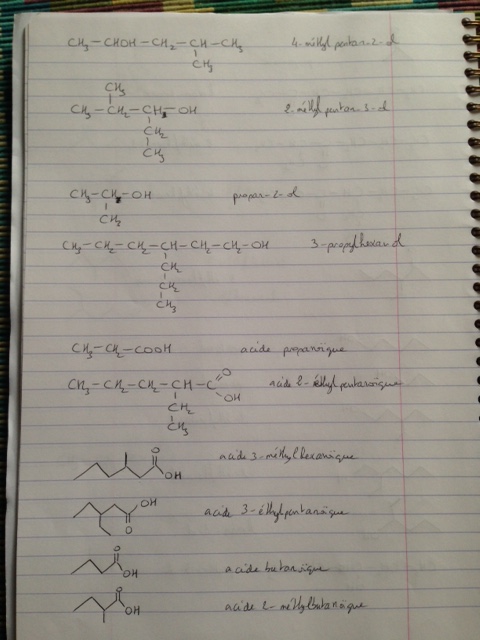 CH₃ – CHOH – CH₂ – CH – CH₃ 4-méthylpentan-2-ol
CH₃
CH₃
CH₃ – CH₂ – CH – OH 2-méthylpentan-3-ol
CH₂
CH₃
CH₃ – CH – OH propan-2-ol
CH₃
CH₃ – CH₂ – CH₂ – CH – CH₂ – CH₂ – OH 3-propylhexan-ol
CH₂
CH₂
CH₃
CH₃ – CH₂ – COOH acide propanoïque
CH₃ – CH₂ – CH₂ – CH – C O acide 2-éthylpentanoïque
OH
CH₂
CH₃
O OH acide 3-méthylhexanoïque
OH O acide 3-éthylpentanoïque
O OH acide butanoïque
O OH acide 2-méthylbutanoïque